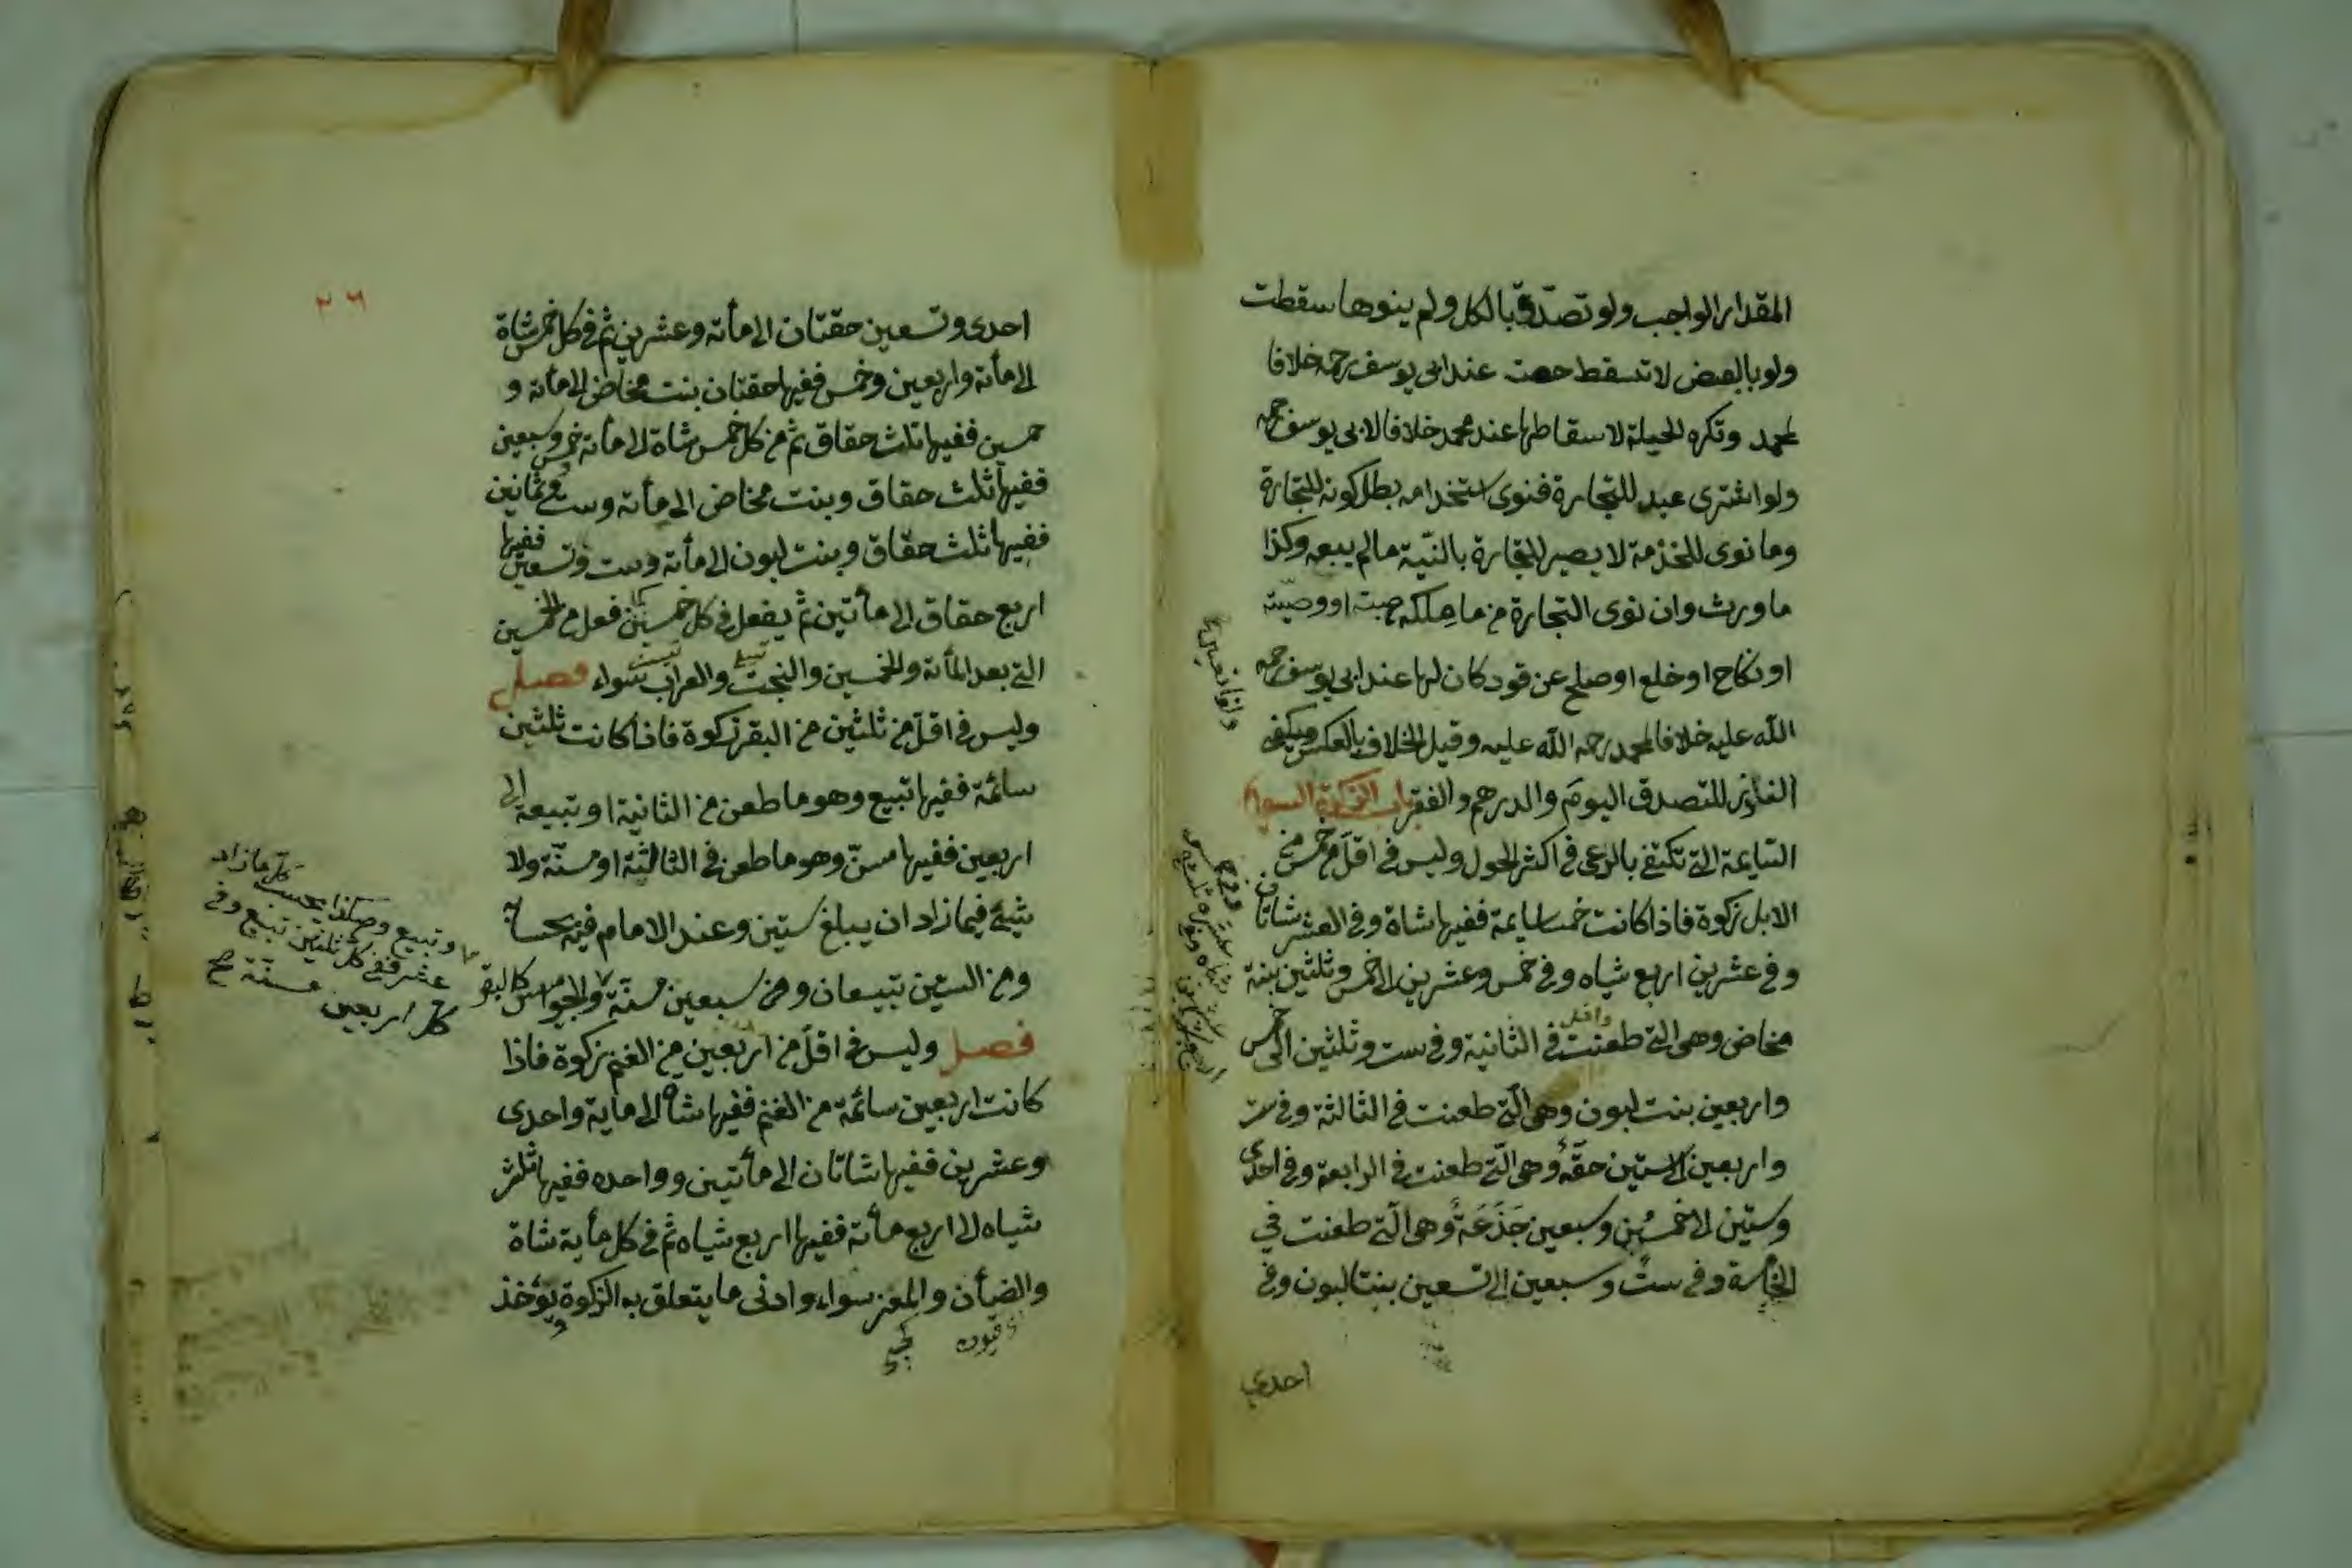 المقدار الواجب ولو تصدّق بالكل ولم ينوها سقطت
ولو بالبعض لا تسقط حصته عند ابى يوسف رحمه خلافا
لمحمد وتكره الحيلة لاسقاطها عند محمد خلافا لابى يوسف رحمه
ولو اشترى عبد للتجارة فنوى استخدامه بطل كونه للتجارة
وما نوى للخذمة لا يصير للتجارة بالنيّة مالم يبعه وكذا
ما ورث وان نوى التجارة من ما ملكه هبته او وصيّته
او نكاح او خلع او صلح عن قود كان لها عند ابى يوسف رحمه
الله عليه خلافا لمحمد رحمه الله عليه وقيل الخلاف بالعكس
الناذر للتصدق اليوم والدرهم والفقر باب الزكوة السوايم
السايمة التى تكتفى بالرعى فى اكثر الحول وليس فى اقلّ من خمس من
الابل زكوة فاذا كانت خمسا سايمة ففيها شاة وفى العشر شاتان
وفى عشرين اربع شياه وفى خمس وعشرين الى خمس وثلثين بنة
مخاض وهى التى طعنت فى الثانية وفى ست وثلثين الى خمس
واربعين بنت لبون وهى الّتى طعنت فى الثالثة وفى ست
واربعين الى ستين حقّة وهى الّتى طعنت فى الرابعة وفى احدى
وستّين الى خمس وسبعين جَذَعَة وهى الّتى طعنت في
الخامسة وفى ستّ وسبعين الى تسعين بنتا لبون وفى
احدي
٢٦
احدى وتسعين حقتان الى مأته وعشرين ثم فى كل خمس شاة
الى مأته واربعين وخمس ففيها حقتان بنت مخاض الى مأته و
خمسين ففيها ثلث حقاق ثم من كل خمس شاة الى مأته خمس وسبعين
ففيها ثلث حقاق وبنت مخاض الى مأته وست وثمانين
ففيها ثلث حقاق وبنت لبون الى مأته وست وتسعين ففيها
اربع حقاق الى مأتين ثم يفعل فى كل خمسين كما فعل فى الخمسين
التى بعد المأته والخمسين والبخت والعراب سواء فصل
وليس فى اقلّ من ثلثين من البقر زكوة فاذا كانت ثلثين
سائمة ففيها تبيع وهو ما طعن من الثانية او تبيعة الى
اربعين ففيها مسنّ وهو ما طعن فى الثالثة او مسنّة ولا
شئ فيما زاد ان يبلغ ستين وعند الامام فيه بحسابه
ومن الستين تبيعان ومن سبعين مسنّة والجواميس كالبقر
كل ما زاد
عشر ففى كل ثلثين تبيع وفى
كل اربعين مسنّة صح
فصل وليس فى اقلّ من اربعين من الغنم زكوة فاذا
كانت اربعين سائمة من الغنم ففيها شاة الى ماية واحدى
وعشرين ففيها شاتان الى مأتين وواحده ففيها ثلث
شياه الى اربع مأته ففيها اربع شياه ثم فى كل مأية شاة
والضأن والمعز سواء وادنى ما يتعلق به الزكوة ويؤخذ